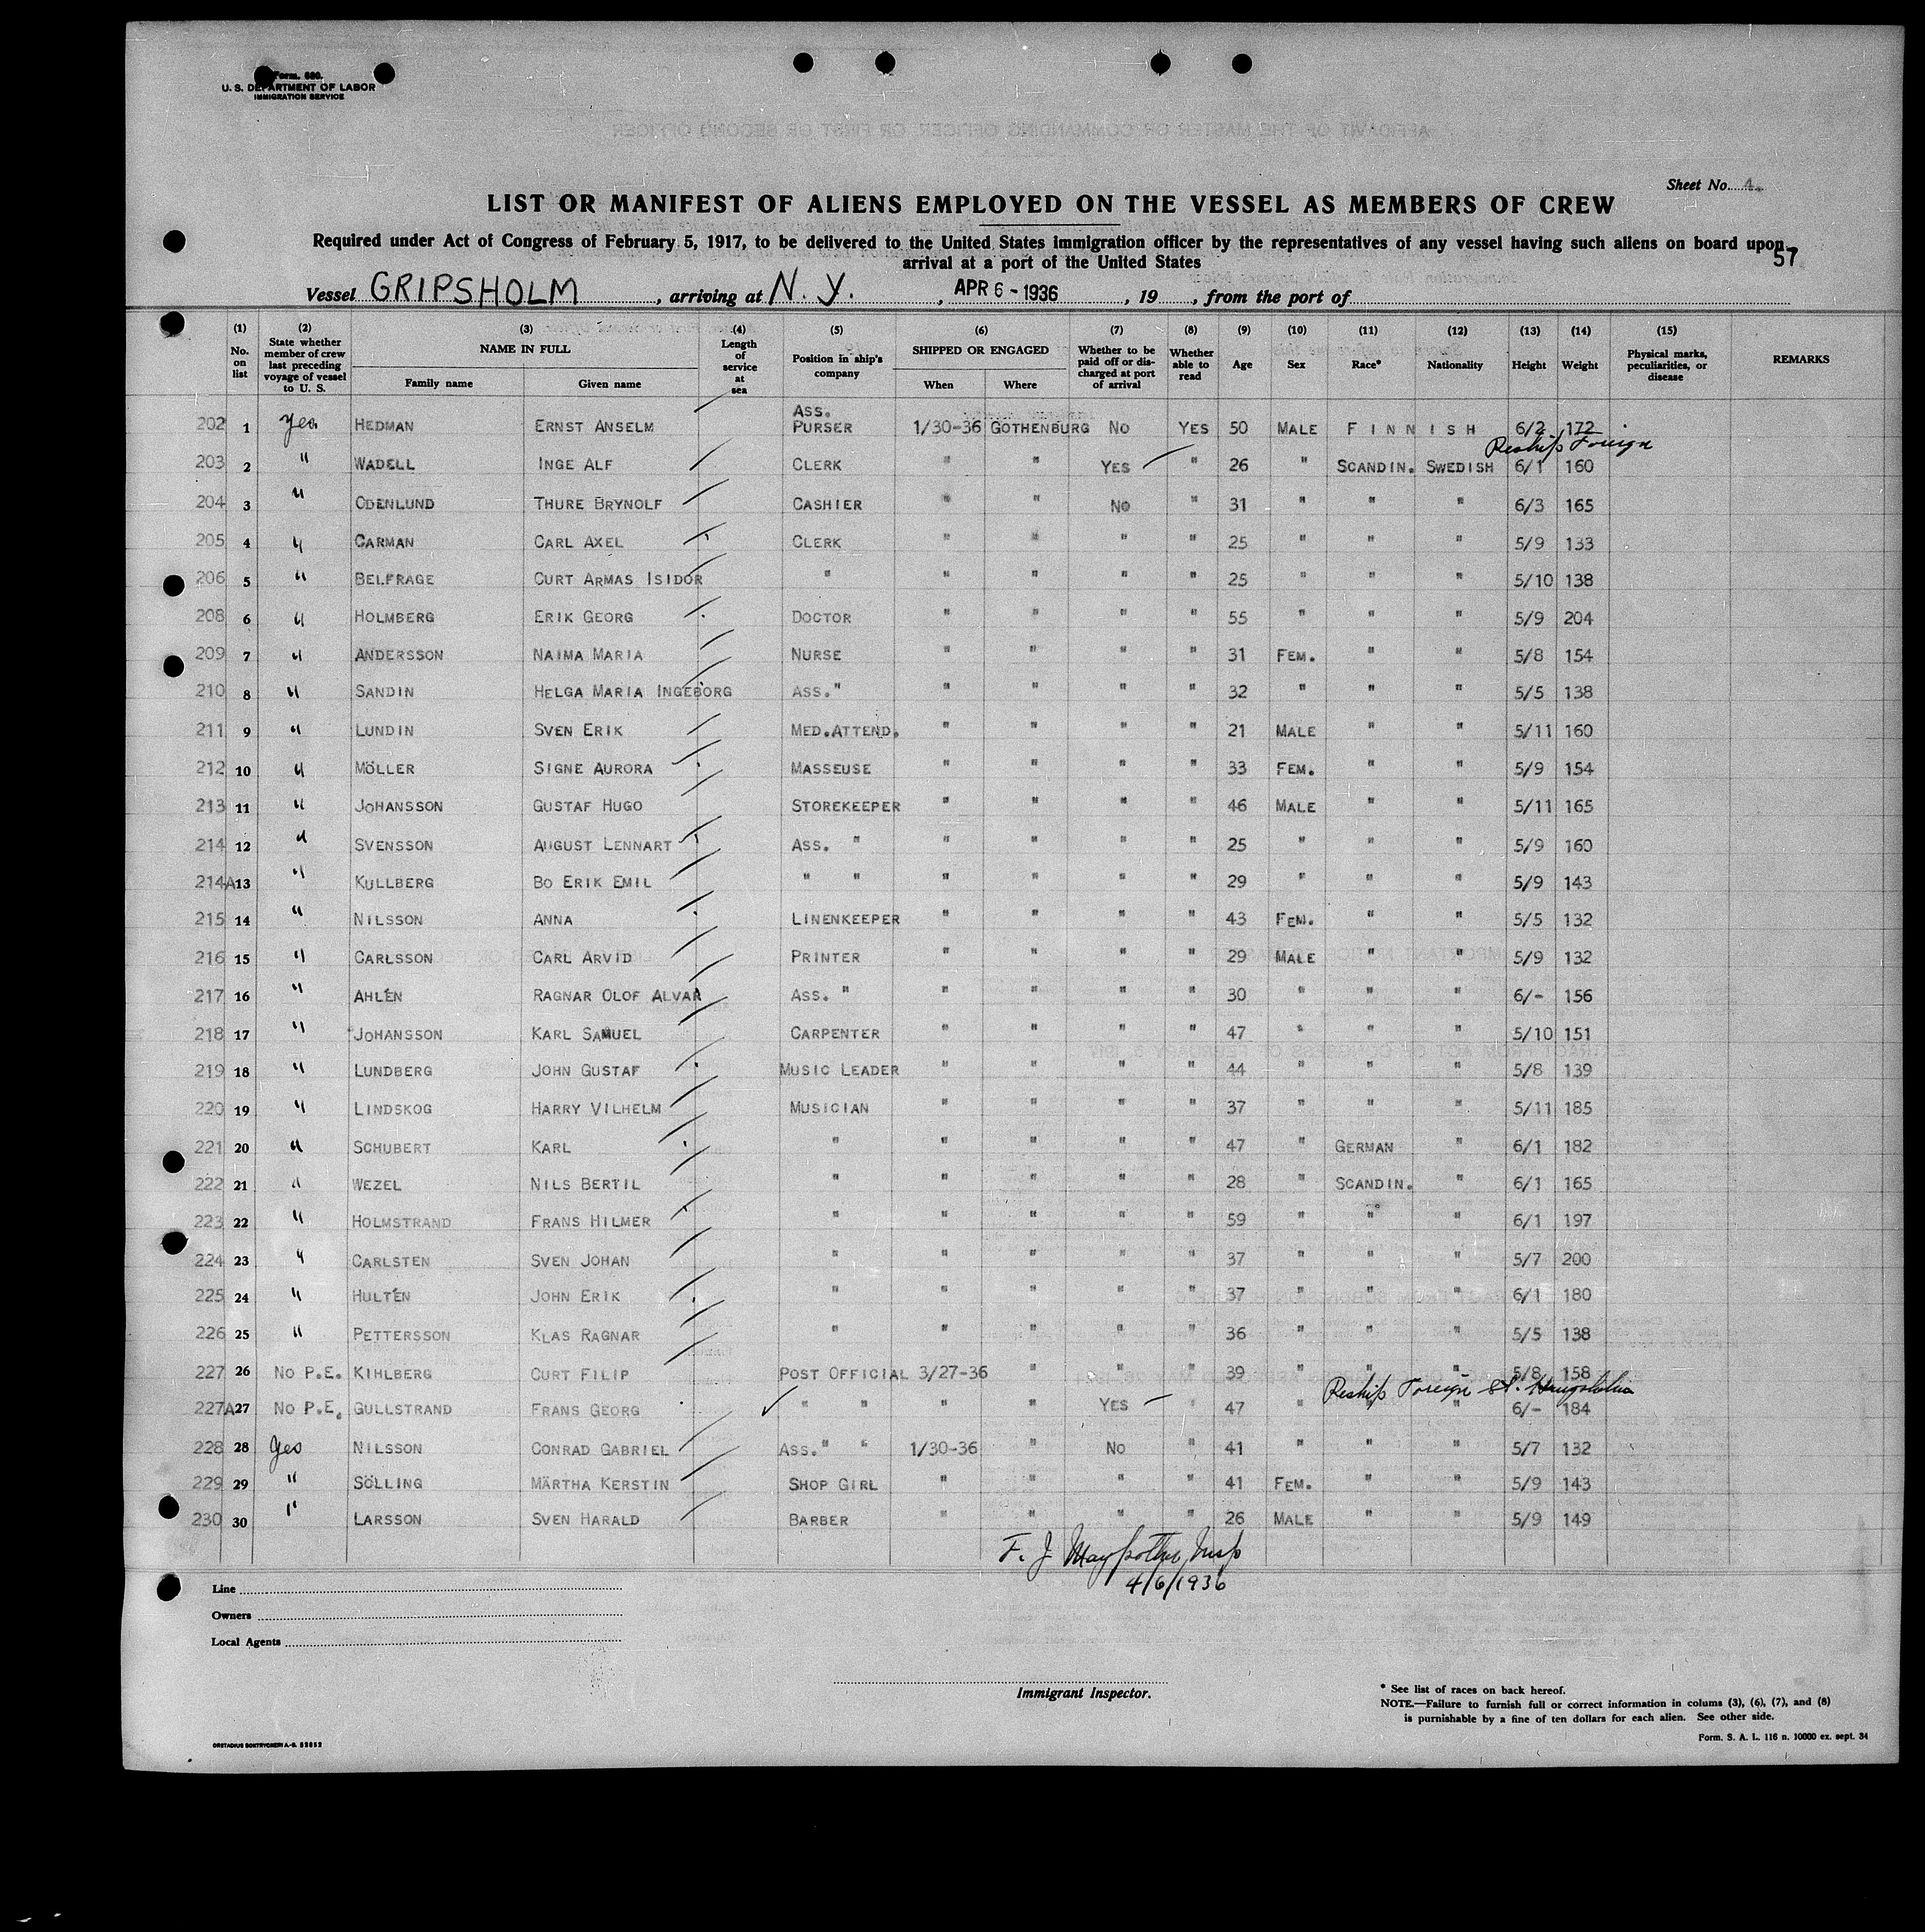 Form. 680.
U. S. DEPARTMENT OF LABOR
IMMIGRATION SERVICE
Sheet No. 4
LIST OR MANIFEST OF ALIENS EMPLOYED ON THE VESSEL AS MEMBERS OF CREW
Required under Act of Congress of February 5, 1917, to be delivered to the United States immigration officer by the representatives of any vessel having such aliens on board upon
arrival at a port of the United States
57
Vessel GRIPSHOLM, arriving at N. Y., APR 6 - 1936, 19, from the port of
(1) (2) (3) (4) (5) (6) (7) (8) (9) (10) (11) (12) (13) (14) (15)
No. on list State whether member of crew last preceding voyage of vessel to U. S. NAME IN FULL Family name Given name Length of service at sea Position in ship's company SHIPPED OR ENGAGED When Where Whether to be paid off or discharged at port of arrival Whether able to read Age Sex Race* Nationality Height Weight Physical marks, peculiarities, or disease REMARKS
202 1 Yes HEDMAN ERNST ANSELM ASS. PURSER 1/30-36 GOTHENBURG NO YES 50 MALE FINNISH 6/2 172
Reship Foreign
203 2 " WADELL INGE ALF CLERK " " YES " 26 " SCANDIN. SWEDISH 6/1 160
204 3 " ODENLUND THURE BRYNOLF CASHIER " " NO " 31 " " " 6/3 165
205 4 " CARMAN CARL AXEL CLERK " " " " 25 " " " 5/9 133
206 5 " BELFRAGE CURT ARMAS ISIDOR " " " " " 25 " " " 5/10 138
208 6 " HOLMBERG ERIK GEORG DOCTOR " " " " 55 " " " 5/9 204
209 7 " ANDERSSON NAIMA MARIA NURSE " " " " 31 FEM. " " 5/8 154
210 8 " SANDIN HELGA MARIA INGEBORG ASS." " " " " 32 " " " 5/5 138
211 9 " LUNDIN SVEN ERIK MED.ATTEND. " " " " 21 MALE " " 5/11 160
212 10 " MÖLLER SIGNE AURORA MASSEUSE " " " " 33 FEM. " " 5/9 154
213 11 " JOHANSSON GUSTAF HUGO STOREKEEPER " " " " 46 MALE " " 5/11 165
214 12 " SVENSSON AUGUST LENNART ASS. " " " " " 25 " " " 5/9 160
214A 13 " KULLBERG BO ERIK EMIL " " " " " " 29 " " " 5/9 143
215 14 " NILSSON ANNA LINENKEEPER " " " " 43 FEM. " " 5/5 132
216 15 " CARLSSON CARL ARVID PRINTER " " " " 29 MALE " " 5/9 132
217 16 " AHLÉN RAGNAR OLOF ALVAR ASS. " " " " " 30 " " " 6/- 156
218 17 " JOHANSSON KARL SAMUEL CARPENTER " " " " 47 " " " 5/10 151
219 18 " LUNDBERG JOHN GUSTAF MUSIC LEADER " " " " 44 " " " 5/8 139
220 19 " LINDSKOG HARRY VILHELM MUSICIAN " " " " 37 " " " 5/11 185
221 20 " SCHUBERT KARL " " " " " 47 " GERMAN " 6/1 182
222 21 " WEZEL NILS BERTIL " " " " " 28 " SCANDIN. " 6/1 165
223 22 " HOLMSTRAND FRANS HILMER " " " " " 59 " " " 6/1 197
224 23 " CARLSTEN SVEN JOHAN " " " " " 37 " " " 5/7 200
225 24 " HULTÉN JOHN ERIK " " " " " 37 " " " 6/1 180
226 25 " PETTERSSON KLAS RAGNAR " " " " " 36 " " " 5/5 138
227 26 NO P.E. KIHLBERG CURT FILIP POST OFFICIAL 3/27-36 " " " 39 " " " 5/8 158
Reship Foreign
227A 27 NO P.E. GULLSTRAND FRANS GEORG " " " " YES " 47 " " " 6/- 184
228 28 Yes NILSSON CONRAD GABRIEL ASS. " " 1/30-36 " NO " 41 " " " 5/7 132
229 29 " SÖLLING MÄRTHA KERSTIN SHOP GIRL " " " " 41 FEM. " " 5/9 143
230 30 " LARSSON SVEN HARALD BARBER " " " " 26 MALE " " 5/9 149
F. J. Insp
4/6/1936
Line
Owners
Local Agents
Immigrant Inspector.
* See list of races on back hereof.
NOTE.—Failure to furnish full or correct information in colums (3), (6), (7), and (8)
is purnishable by a fine of ten dollars for each alien. See other side.
Form. S. A. L. 116 n. 10000 ex. sept. 34